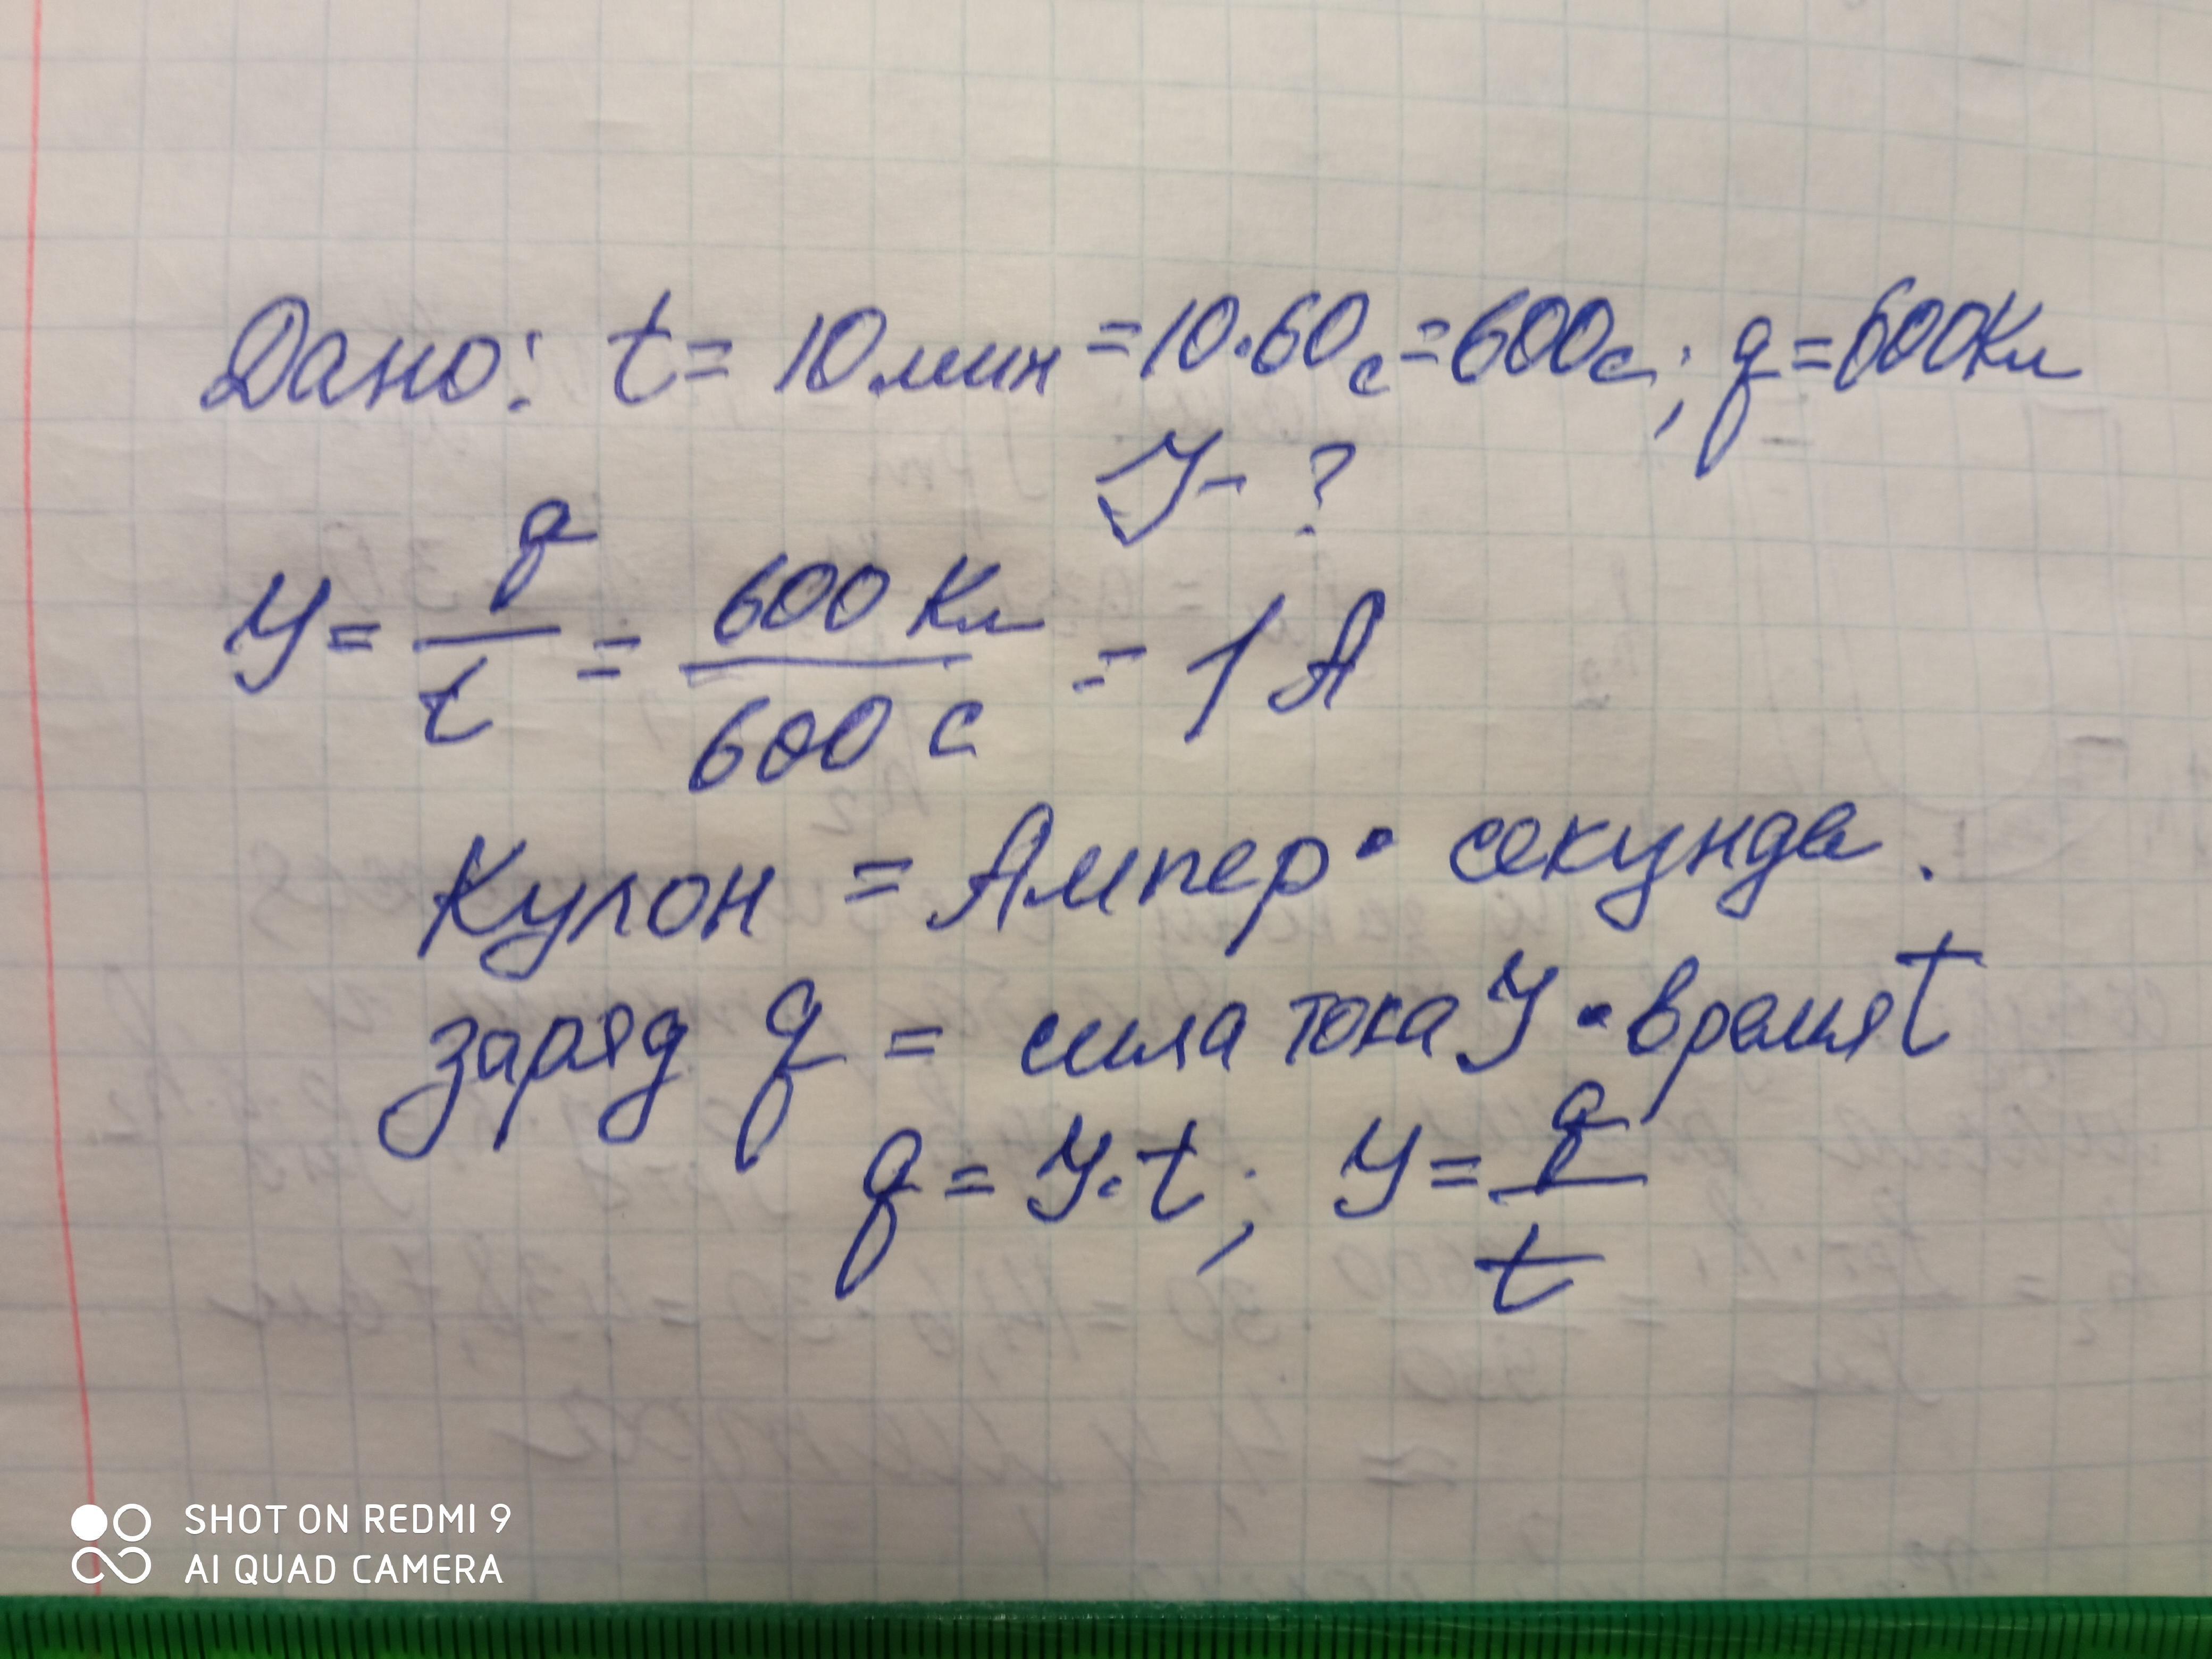 Дано: t = 10 мин = 10·60 с = 600 с; q = 600 Кл
J - ?
J = q/t = 600 Кл/600 с = 1 А
Кулон = Ампер · секунда.
заряд q = сила тока J · время t
q = J·t; J = q/t
SHOT ON REDMI 9
AI QUAD CAMERA